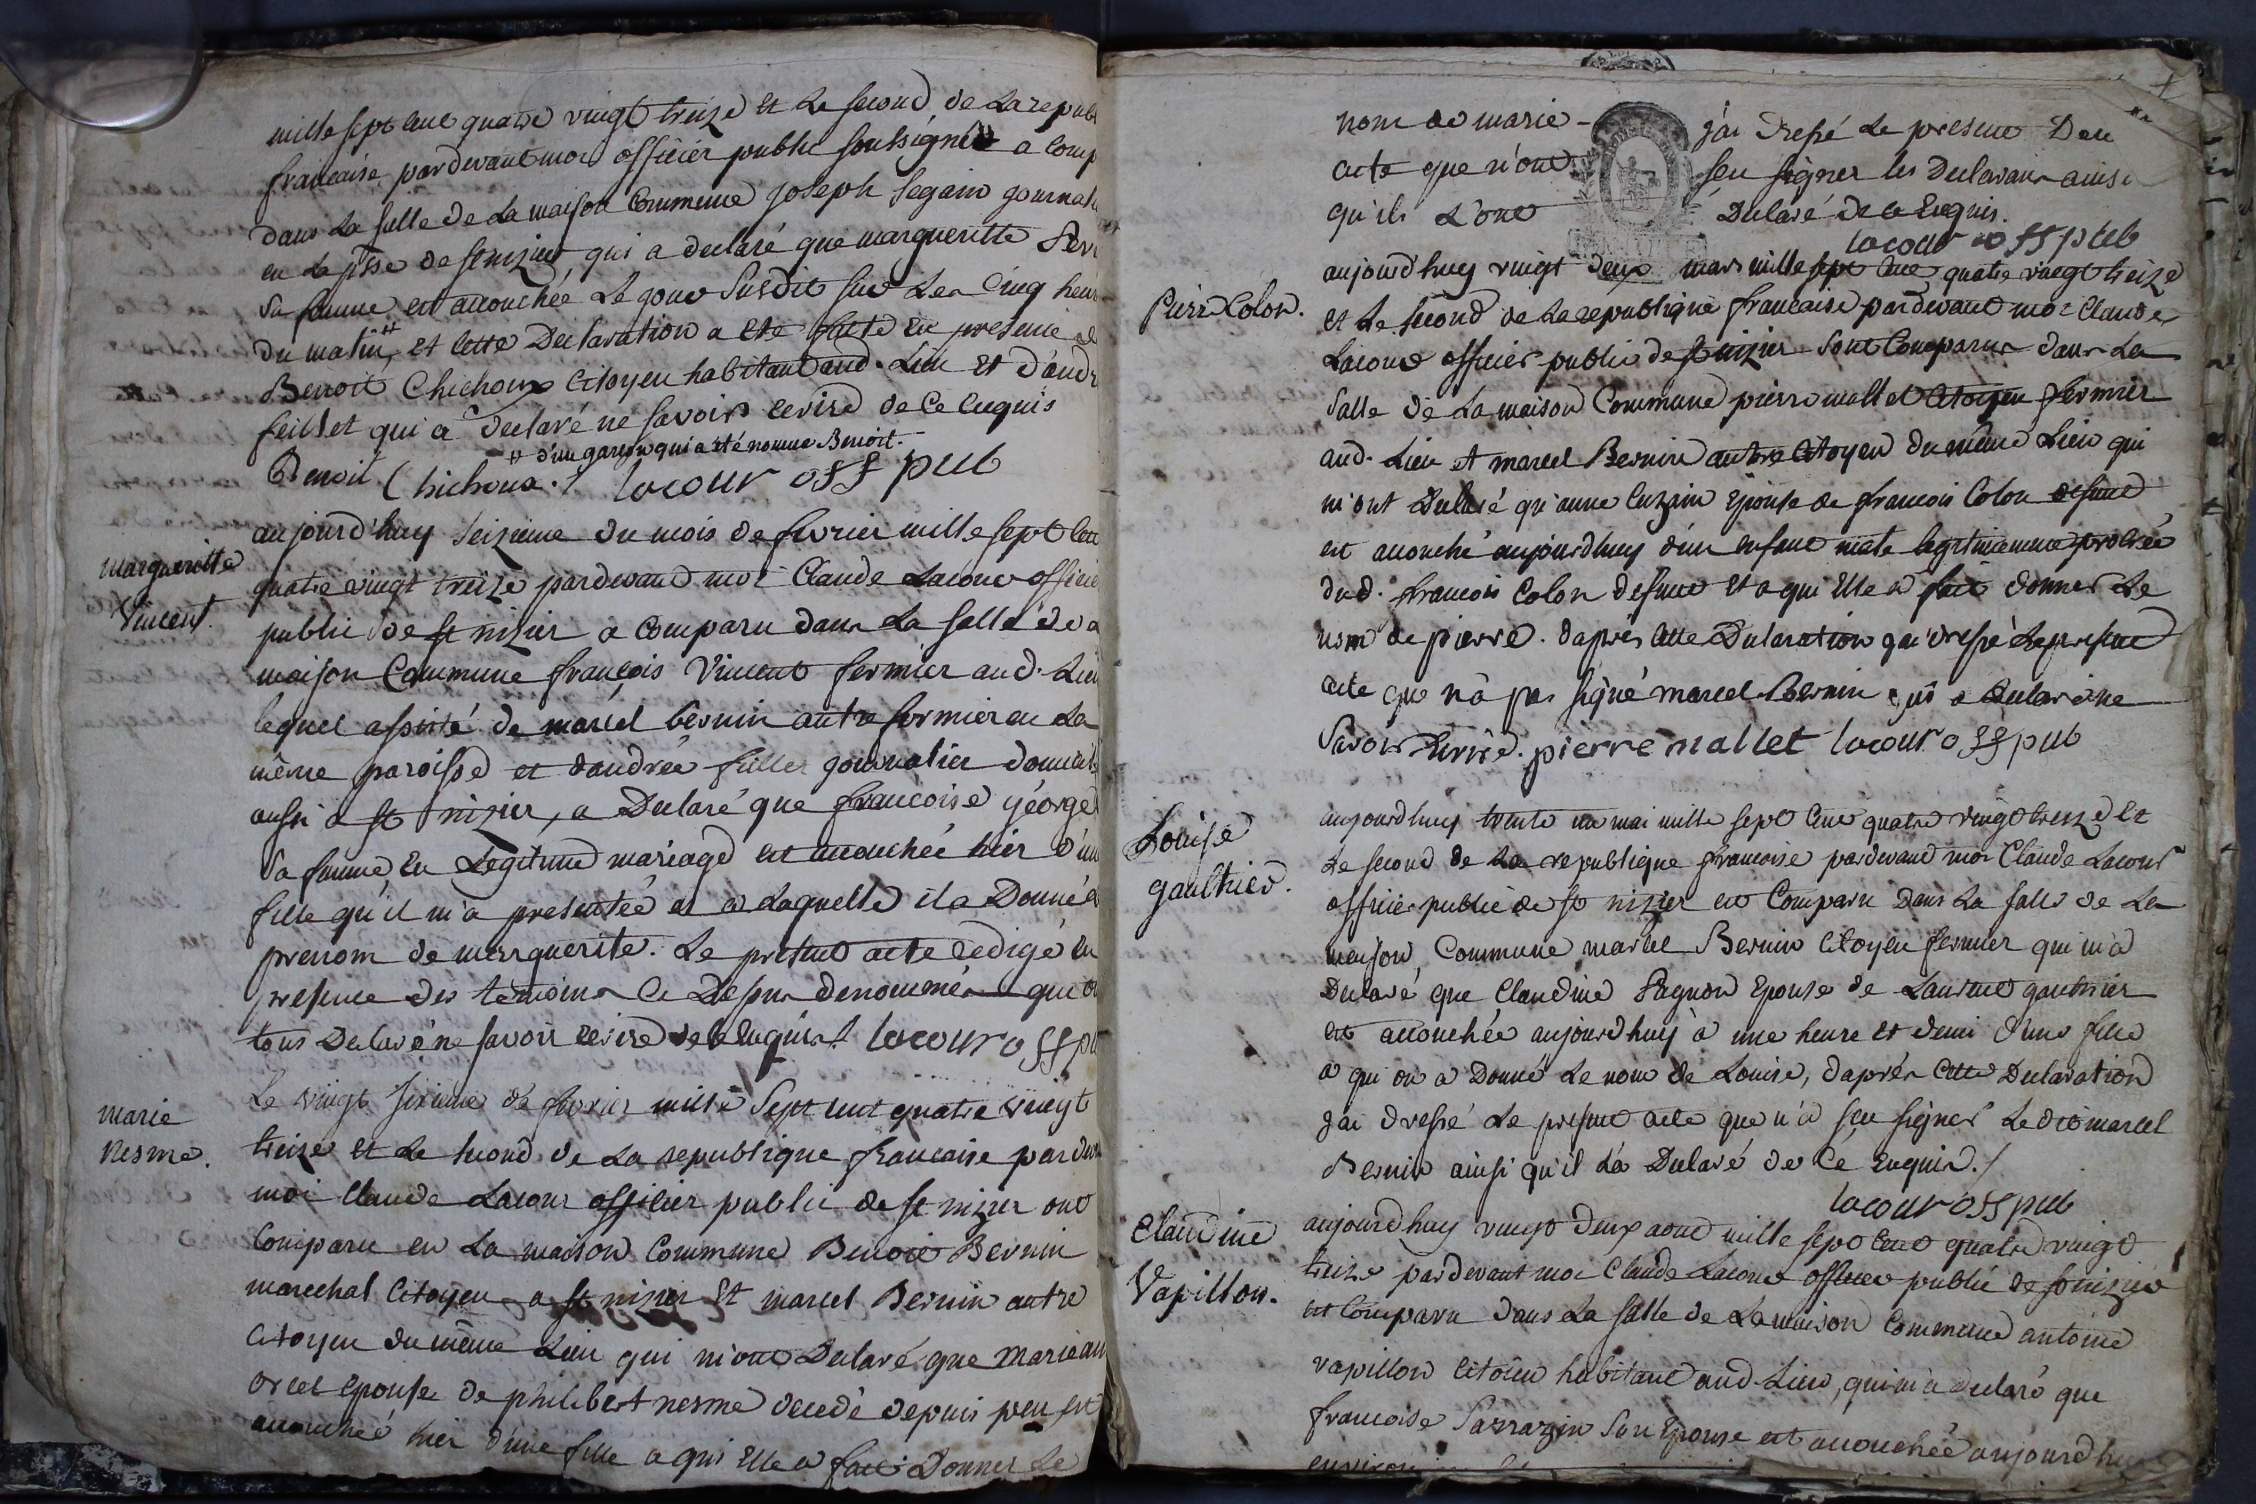 mille sept cent quatre vingt treize et le second de la republ
francaise pardevant moi officier public soussigné a comp
dans la salle de la maison commune joseph segain journal
en la psse de st nizier qui a declaré que margueritte
sa femme est accouchée le jour susdit sur les cinq heur
du matin # et cette declaration a ete faite en presence de
Benoit Chichoux citoyen habitant aud. lieu et d'andr
feillet qui a declaré ne savoir ecrire de ce enquis
# d'un garçon qui a été nommé Benoit.
Benoit Chichoux . / lacour off pub
margueritte
Vincent.
aujourd'huy seizieme du mois de fevrier mille sept cen
quatre vingt treize pardevant moi Claude Lacour officie
public de st nizier a comparu dans la salle de la
maison commune françois Vincent fermier aud. lieu
lequel assisté de marcel bernin autre fermier en la
même paroisse et d'andrée journalier domicil
aussi a st nizier, a declaré que francoise george
sa femme en legitime mariage est accouchée hier d'un
fille qu'il m'a presentée et a laquelle il a donné le
prenom de marguerite. Le present acte redigé en
presence des temoins ci dessus denommés que
tous declaré ne savoir ecrire de ce enquis ./. lacour off pu
marie
nesme.
Le vingt sixieme de fevrier mille sept cent quatre vingt
treize et le second de la republique francaise pardev
moi Claude Lacour officier public de st nizier ont
comparu en la maison commune Benoit Bernin
marechal citoyen a st nizier et marcel Bernin autre
citoyen du même lieu qui m'ont declaré que marie ann
orcel epouse de philibert nesme decedé depuis peu est
accouchée hier d'une fille a qui elle a fait donner le
nom de marie - j'ai dressé le present
acte que n'ont seu signer les declarans ainsi
qu'ils l'ont declaré de ce enquis.
lacour off pub
Pierre Colon.
aujourd'huy vingt deux mars mille sept cent quatre vingt treize
et le second de la republique francaise pardevant moi Claude
Lacour officier public de st nizier sont comparus dans la
salle de la maison commune pierre mallet citoyen fermier
aud. lieu et marcel Bernin autre citoyen du même lieu qui
m'ont declaré qu'anne epouse de francois Colon defunt
est accouché aujourd'huy d'un enfant male legitimement procréé
dud. francois Colon defunt et a qui elle a fait donner le
nom de pierre. d'apres cette declaration j'ai dressé le present
acte que n'a pas signé marcel Bernin qui a declaré ne
savoir ecrire. pierre mallet lacour off pub
Louise
gaulthier.
aujourd'huy trente un mai mille sept cent quatre vingt treize et
le second de la republique francoise pardevant moi Claude Lacour
officier public de st nizier est comparu dans la salle de la
maison commune marcel Bernin citoyen fermier qui m'a
declaré que Claudine epouse de Laurent gauthier
est accouchée aujourd'huy à une heure et demi d'une fille
a qui on a donné le nom de Louise, d'après cette declaration
j'ai dressé le present acte que n'a seu signer le dit marcel
Bernin ainsi qu'il l'a declaré de ce enquis . /
lacour off pub
Claudine
Vapillon.
aujourd'huy vingt deux aout mille sept cent quatre vingt
treize pardevant moi Claude Lacour officier public de st nizier
est comparu dans la salle de la maison commune antoine
vapillon citoien habitant aud. lieu, qui m'a declaré que
francoise Sarrazin son epouse est accouchée aujourd'huy
environ